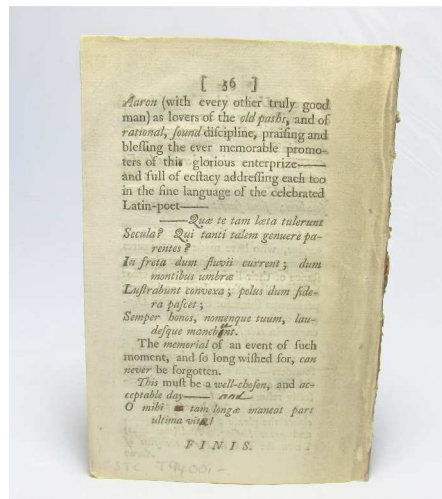 [ 36 ]
Aaron (with every other truly good
man) as lovers of the old paths, and of
rational, ſound diſcipline, praiſing and
bleſſing the ever memorable promo-
ters of this glorious enterprize——
and full of ecſtacy addreſſing each too
in the fine language of the celebrated
Latin-poet——
——Quæ te tam læta tulerunt
Secula? Qui tanti talem genuere pa-
rentes?
In freta dum fluvii current; dum
montibus umbræ
Luſtrabunt convexa; polus dum ſide-
ra paſcet;
Semper honos, nomenque tuum, lau-
deſque manebunt.
The memorial of an event of ſuch
moment, and ſo long wiſhed for, can
never be forgotten.
This muſt be a well-choſen, and ac-
ceptable day—— and
O mihi tam longæ maneat pars
ultima vitæ!
FINIS.
ESTC